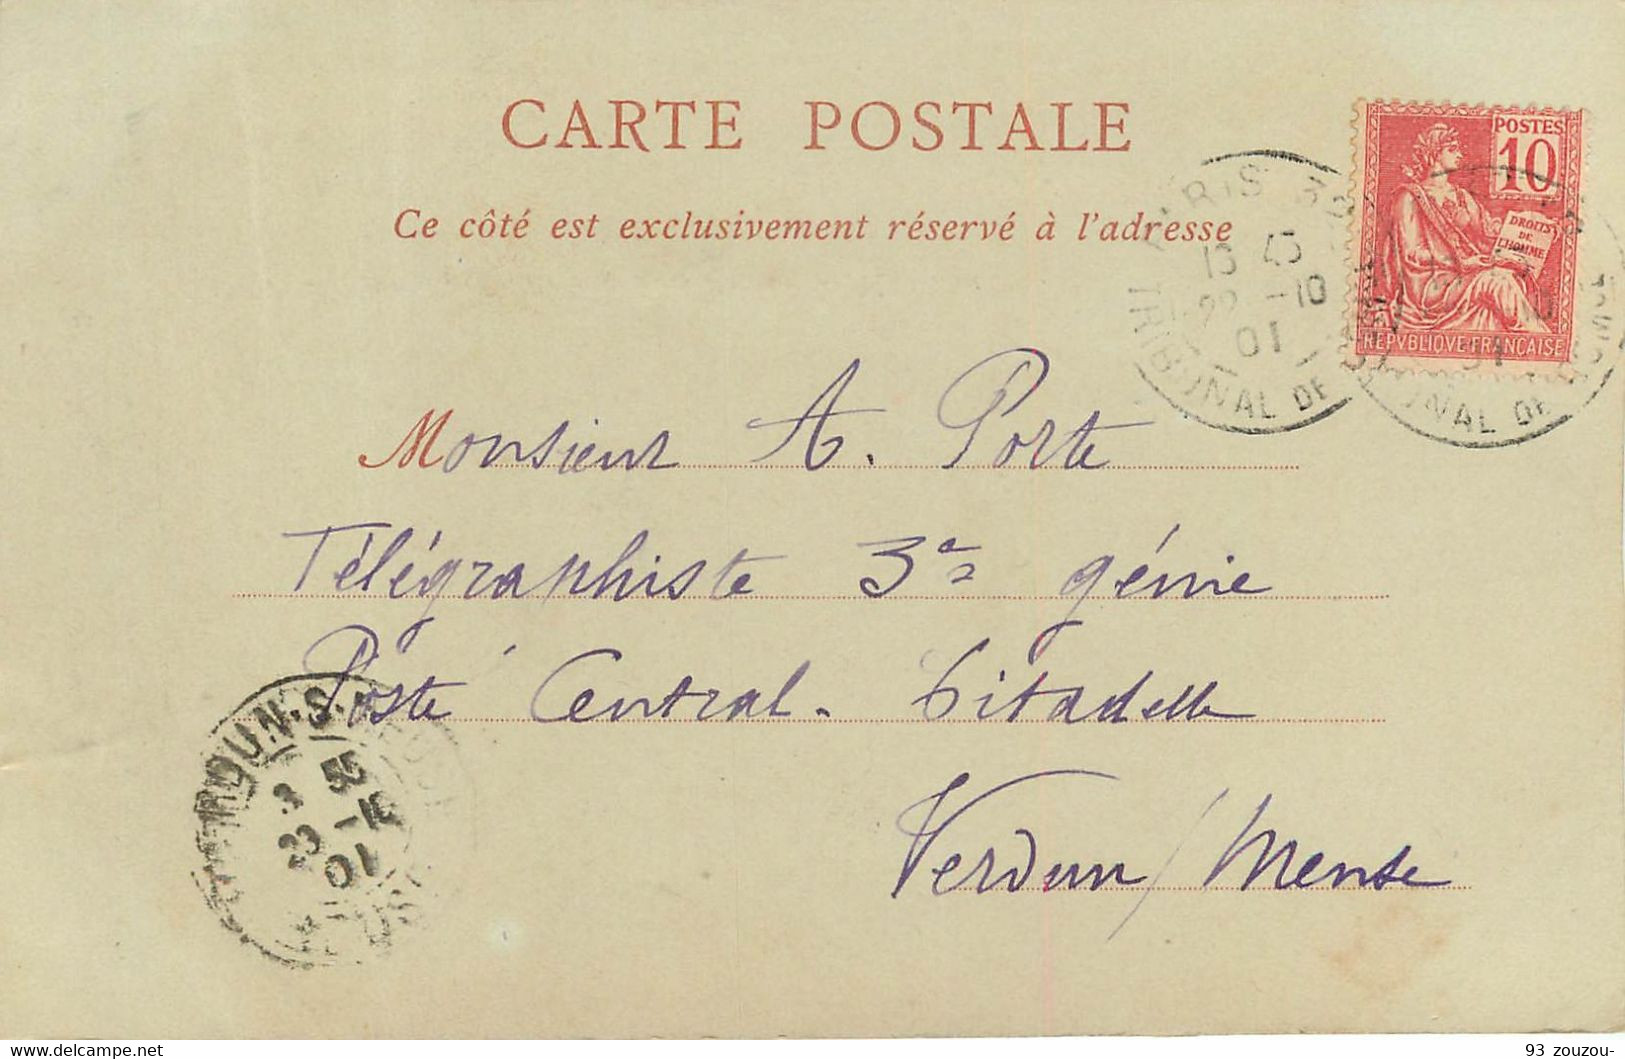 CARTE POSTALE
Ce côté est exclusivement réservé à l'adresse
POSTES
10
DROITS
DE
L'HOMME
REPVBLIQVE FRANÇAISE
22 -10
01
TRIBUNAL DE
Monsieur A. Porte
Télégraphiste 3e génie
Poste Central. Citadelle
Verdun / Meuse
VERDUN-S-MEUSE
3 35
23 -10
01
93 zouzou-